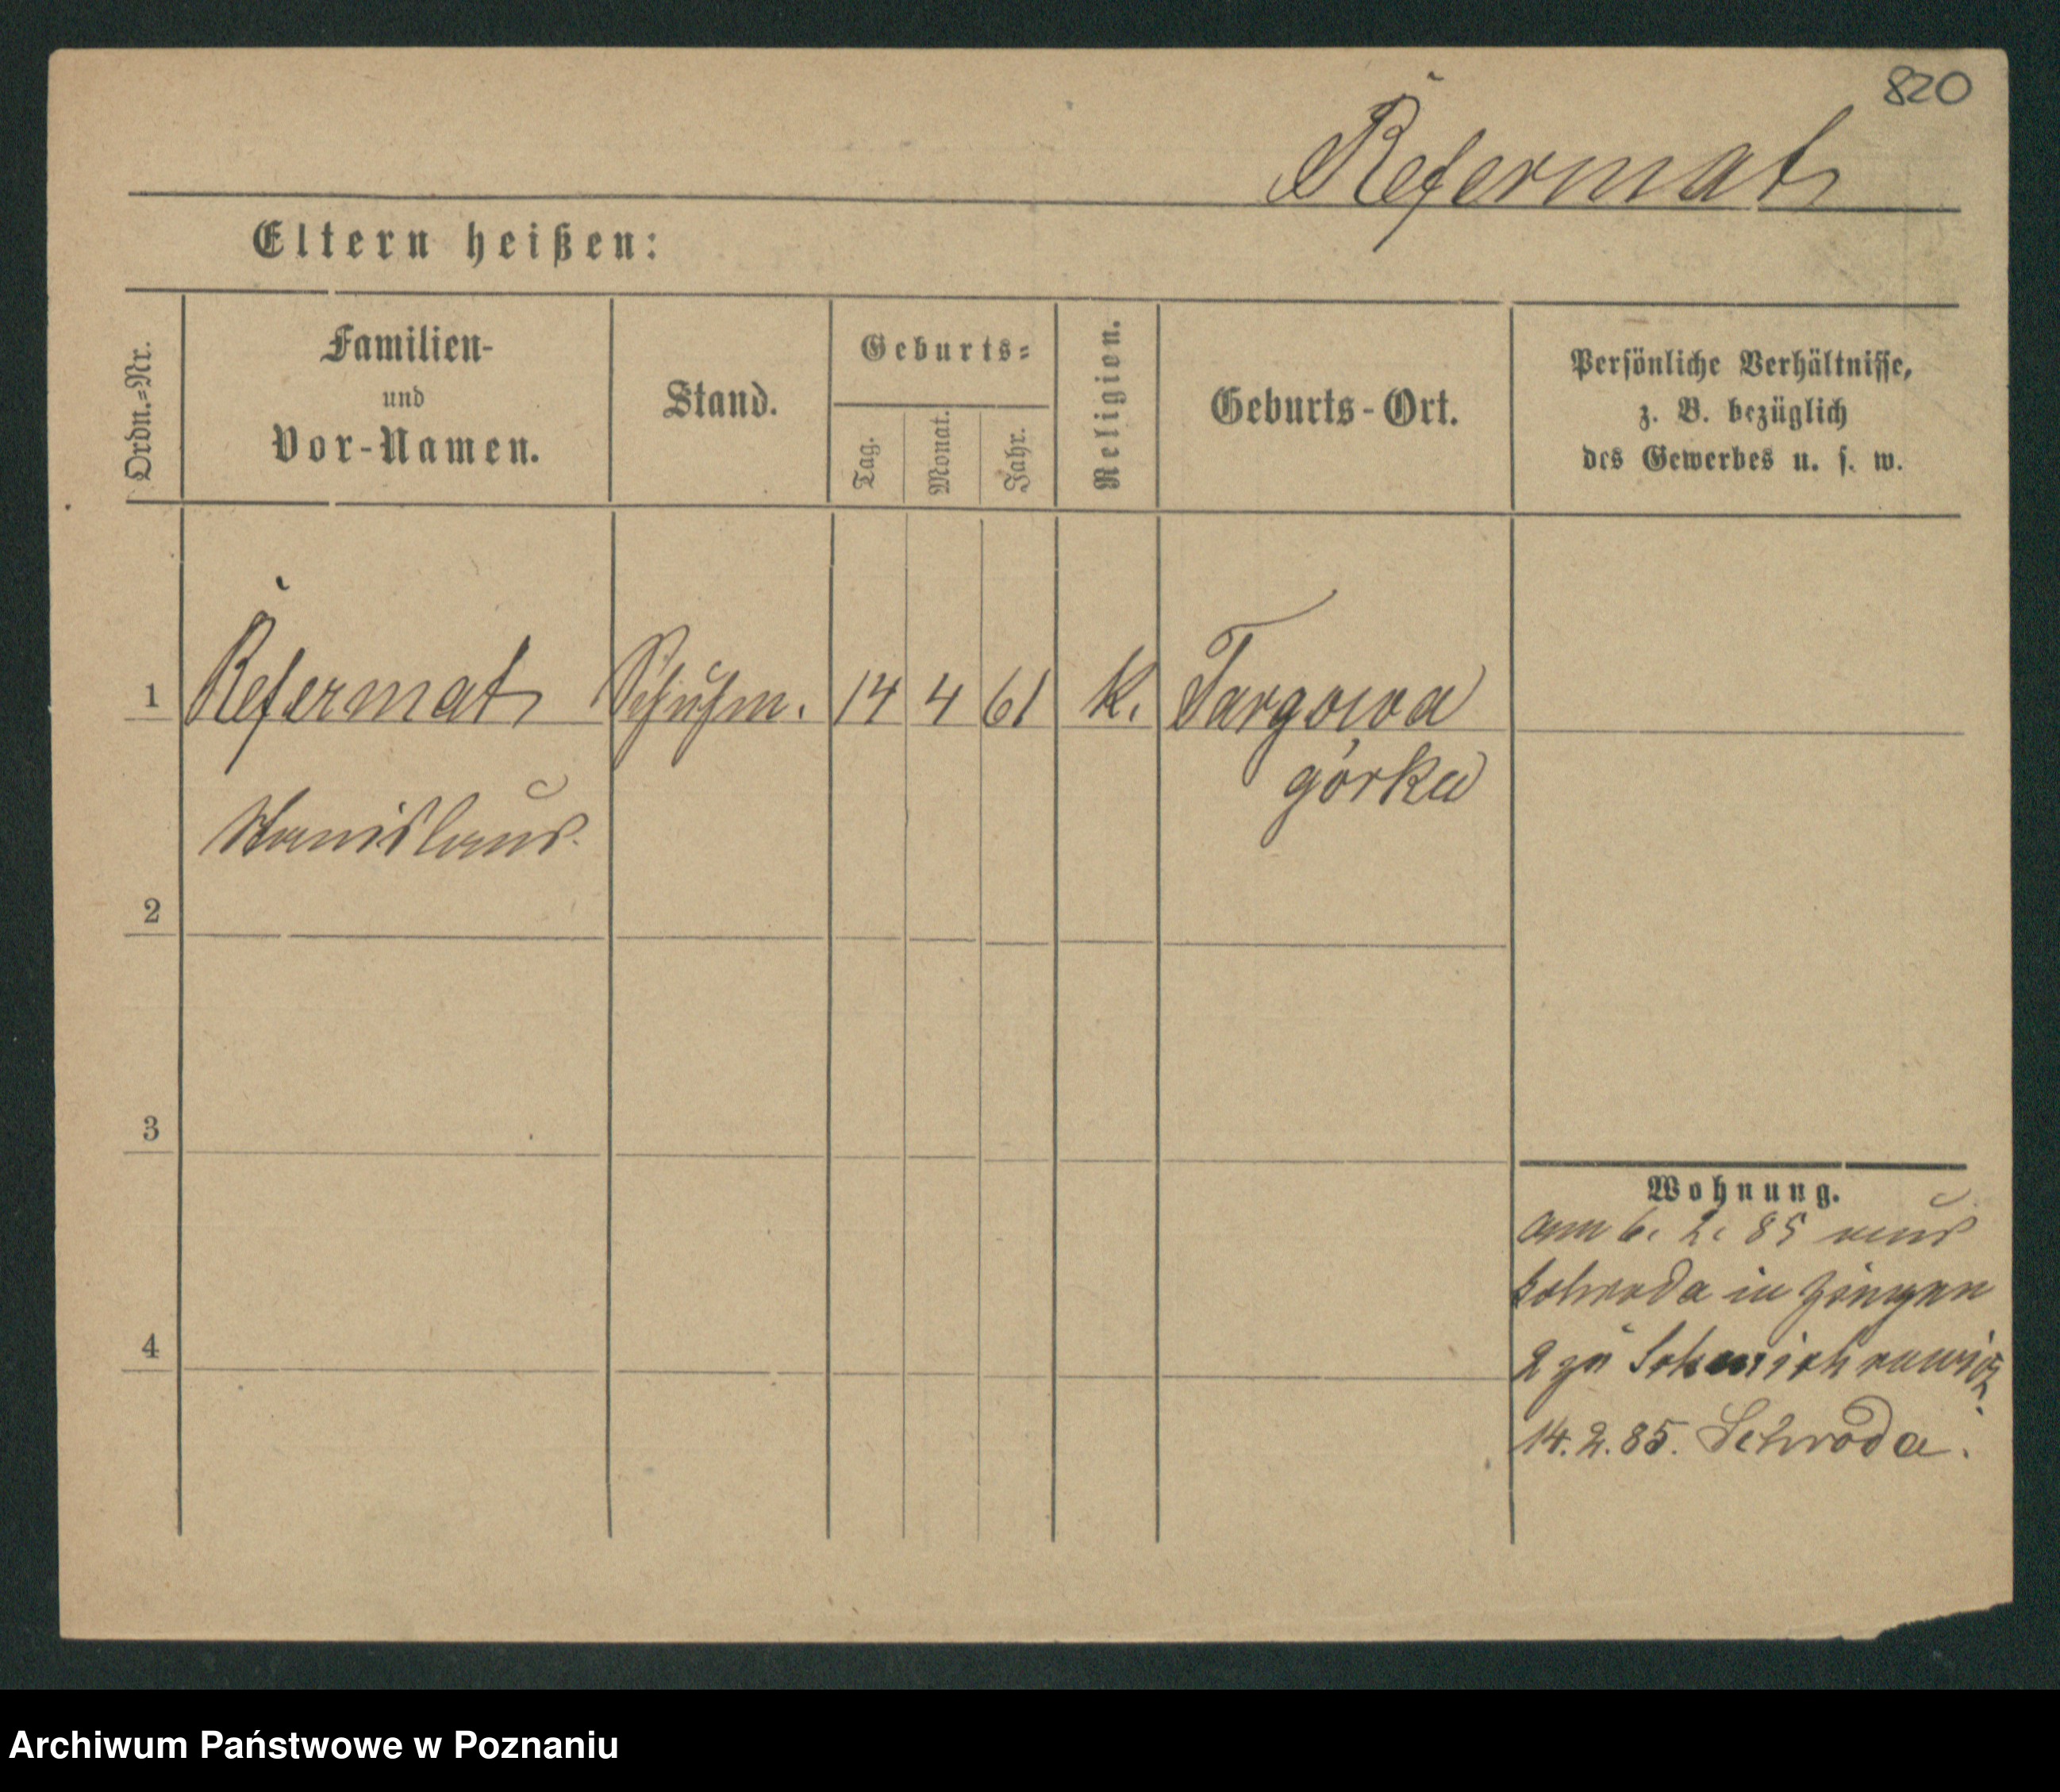 820
Refermat
Eltern heißen:
Ordn.-Nr.
Familien-
und
Vor-Namen.
Stand.
Geburts-
Tag.
Monat.
Jahr.
Religion.
Geburts-Ort.
Persönliche Verhältnisse,
z. B. bezüglich
des Gewerbes u. s. w.
1 Refermat Schuhm. 14 4 61 K. Targowa
górka
Stanislaus.
2
3
4
Wohnung.
am 6. 2. 85 aus
Schroda in
2 zu
14. 2. 85. Schroda.
Archiwum Państwowe w Poznaniu